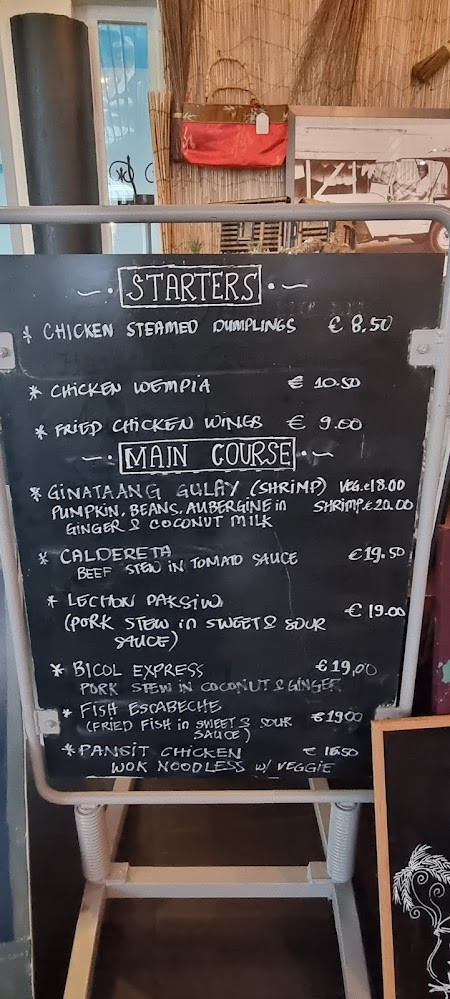 STARTERS
* CHICKEN STEAMED DUMPLINGS € 8.50
* CHICKEN LOEMPIA € 10.50
* FRIED CHICKEN WINGS € 9.00
MAIN COURSE
* GINATAANG GULAY (SHRIMP) VEG.€18.00
PUMPKIN, BEANS, AUBERGINE in SHRIMP.€20.00
GINGER & COCONUT MILK
* CALDERETA €19.50
BEEF STEW IN TOMATO SAUCE
* LECHON PAKSIW €19.00
(PORK STEW in SWEET & SOUR
SAUCE)
* BICOL EXPRESS €19,00
PORK STEW IN COCONUT & GINGER
* FISH ESCABECHE €19,00
(FRIED FISH in SWEET & SOUR
SAUCE)
* PANSIT CHICKEN
WOK NOODLESS w/ VEGGIE